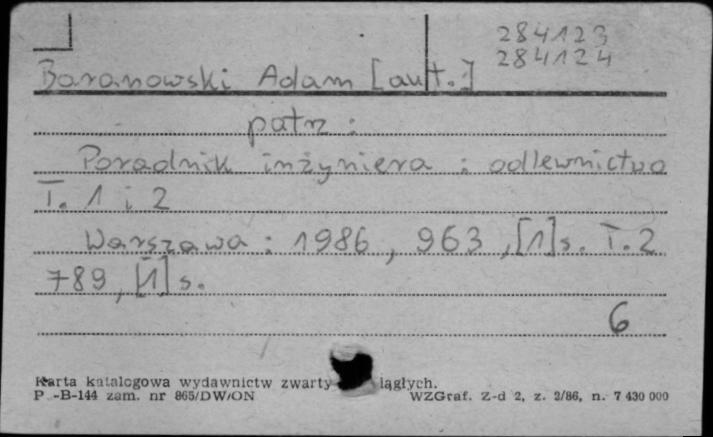 284123
284124
Baranowski Adam [aut.]
patrz :
Poradnik inżyniera : odlewnictwo
T. 1 i 2
Warszawa : 1986, 963, [1] s. T. 2
789, [1] s.
6
Karta katalogowa wydawnictw zwarty iągłych.
P -B-144 zam. nr 865/DW/ON WZGraf. Z-d 2, z. 2/86, n. 7 430 000